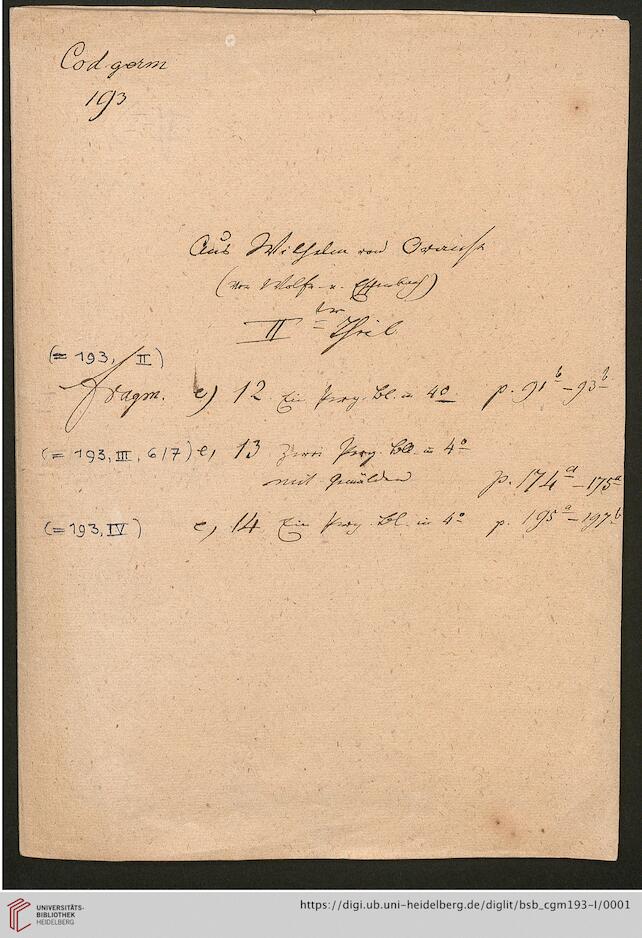 Cod. germ
193
Aus Wilhelm von Oranse
(von Wolfr. v. Eschenbach)
II ter Theil
(= 193, II)
fragm. e) 12 Ein Perg. Bl. in 4o p. 91b–93b
(= 193, III, 6/7) e, 13 Zwei Perg. Bll. in 4o
mit Gemälden p. 174a–175a
(= 193, IV) e, 14 Ein Perg. Bl. in 4o p. 195a–197b
UNIVERSITÄTS-
BIBLIOTHEK
HEIDELBERG
https://digi.ub.uni-heidelberg.de/diglit/bsb_cgm193-I/0001